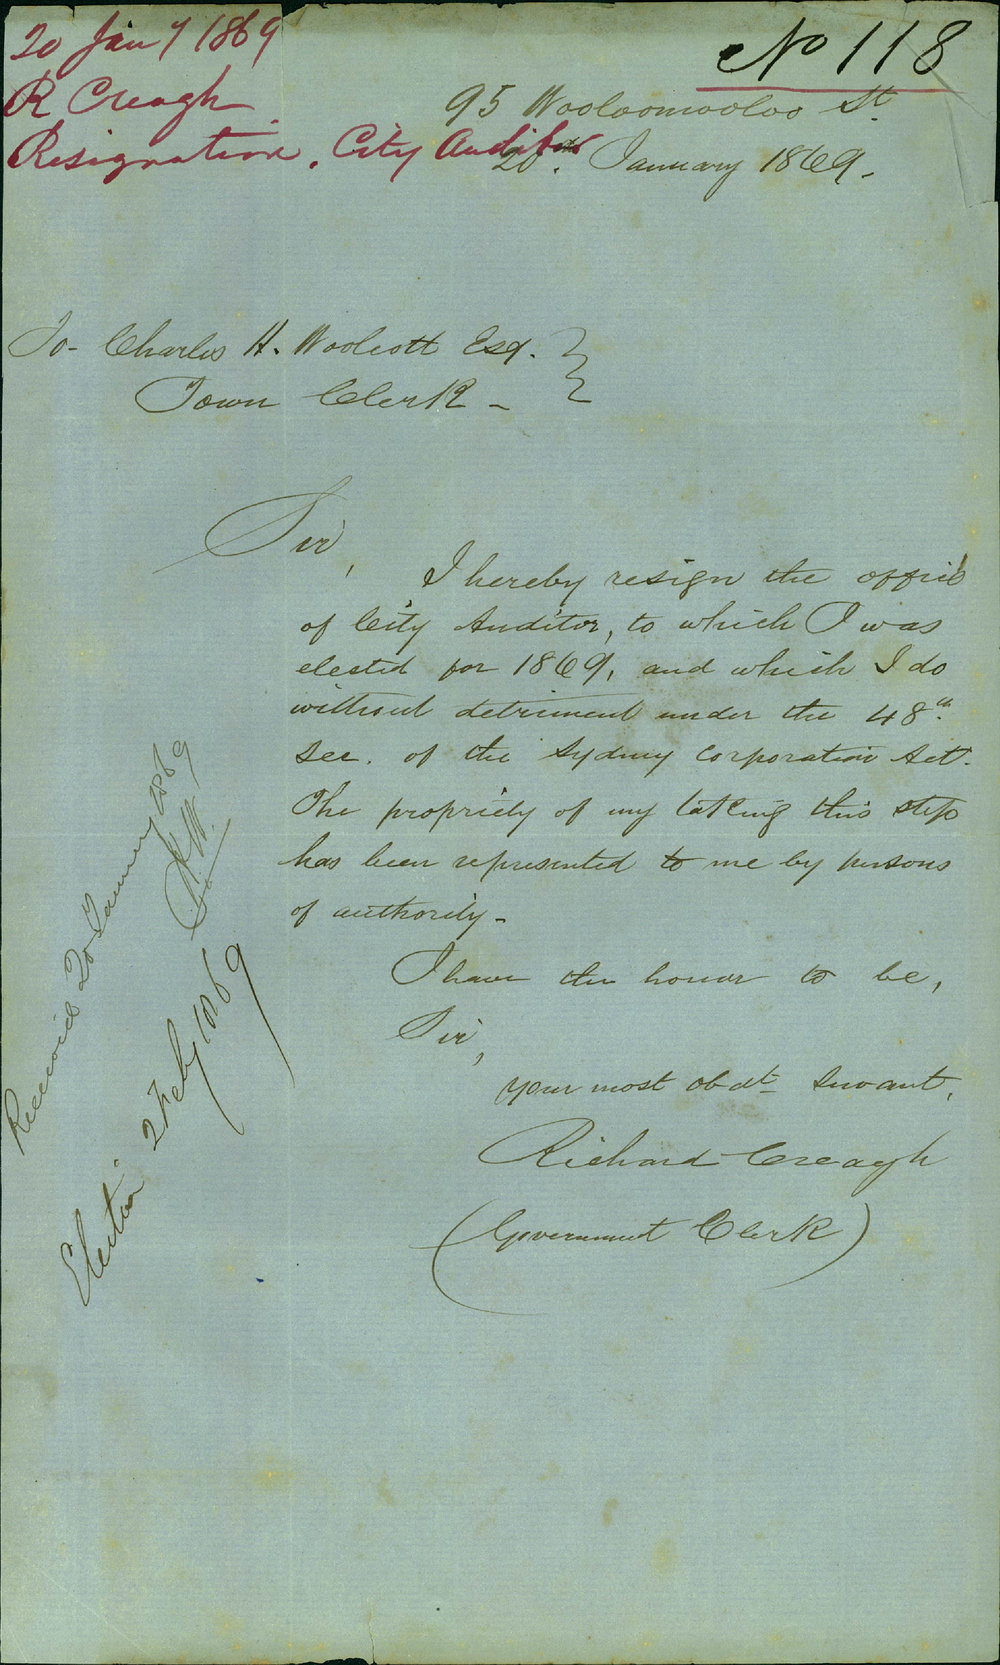 20 Jany 1869
R Creagh
Resignation. City Auditor
No 118
95 Wooloomooloo St.
20th. January 1869.
To- Charles H. Woolcott Esq.
Town Clerk -
Sir,
I hereby resign the office
of City Auditor, to which I was
elected for 1869, and which I do
without detriment under the 48th.
sec. of the Sydney Corporation Act.
The propriety of my taking this step
has been represented to me by persons
of authority -
I have the honor to be,
Sir,
your most obdt servant,
Richard Creagh
(Government Clerk)
Received 20 January 1869
C.H.W.
Election 2 Feby 1869